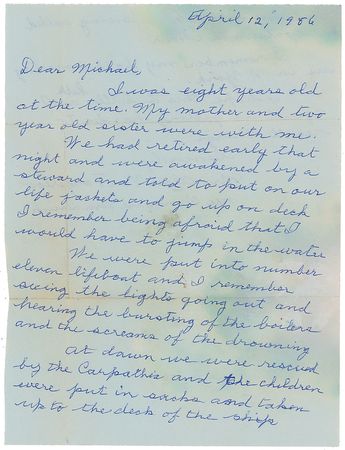 April 12, 1986
Dear Michael,
I was eight years old
at the time. My mother and two
year old sister were with me.
We had retired early that
night and were awakened by a
steward and told to put on our
life jackets and go up on deck
I remember being afraid that I
would have to jump in the water
We were put into number
eleven lifeboat and I remember
seeing the lights going out and
hearing the bursting of the boilers
and the screams of the drowning
At dawn we were rescued
by the Carpathia and the children
were put in sacks and taken
up to the deck of the ship